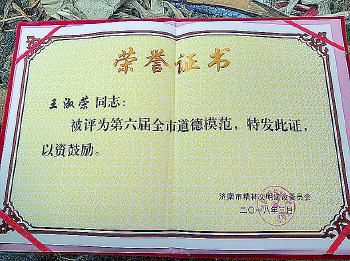 荣誉证书
王淑荣同志：
被评为第六届全市道德模范，特发此证，
以资鼓励。
济南市精神文明建设委员会
二〇一八年二月